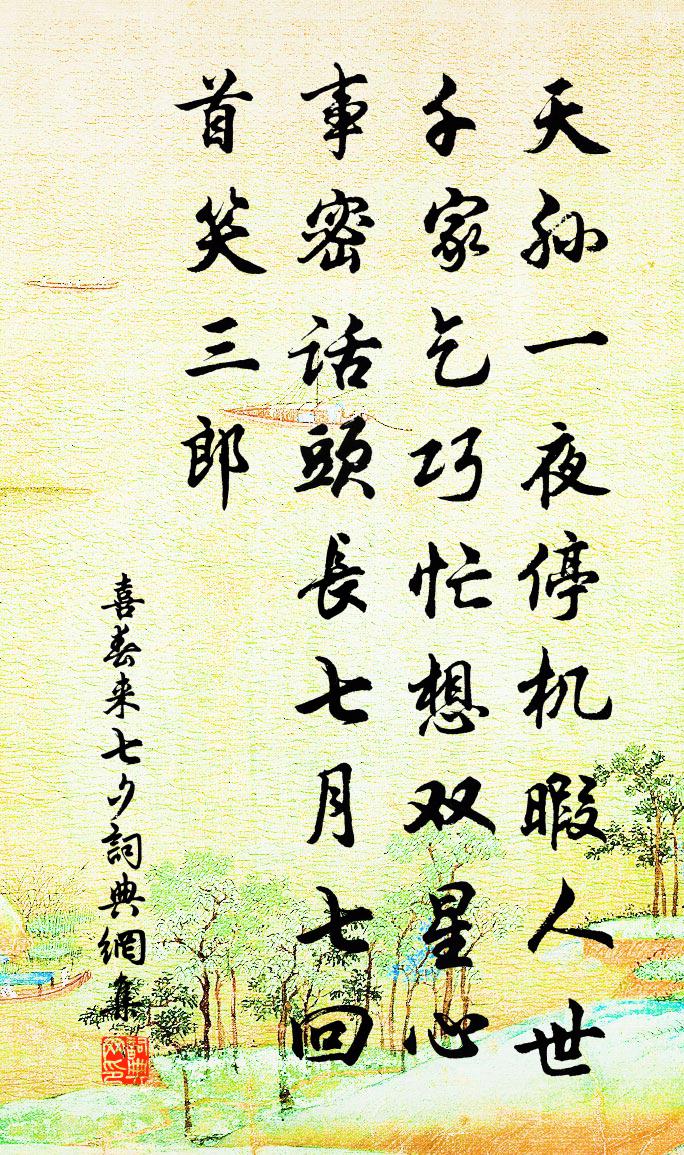 天孙一夜停机暇人世
千家乞巧忙想双星心
事密话頭長七月七回
首笑三郎
喜春来七夕詞典網集